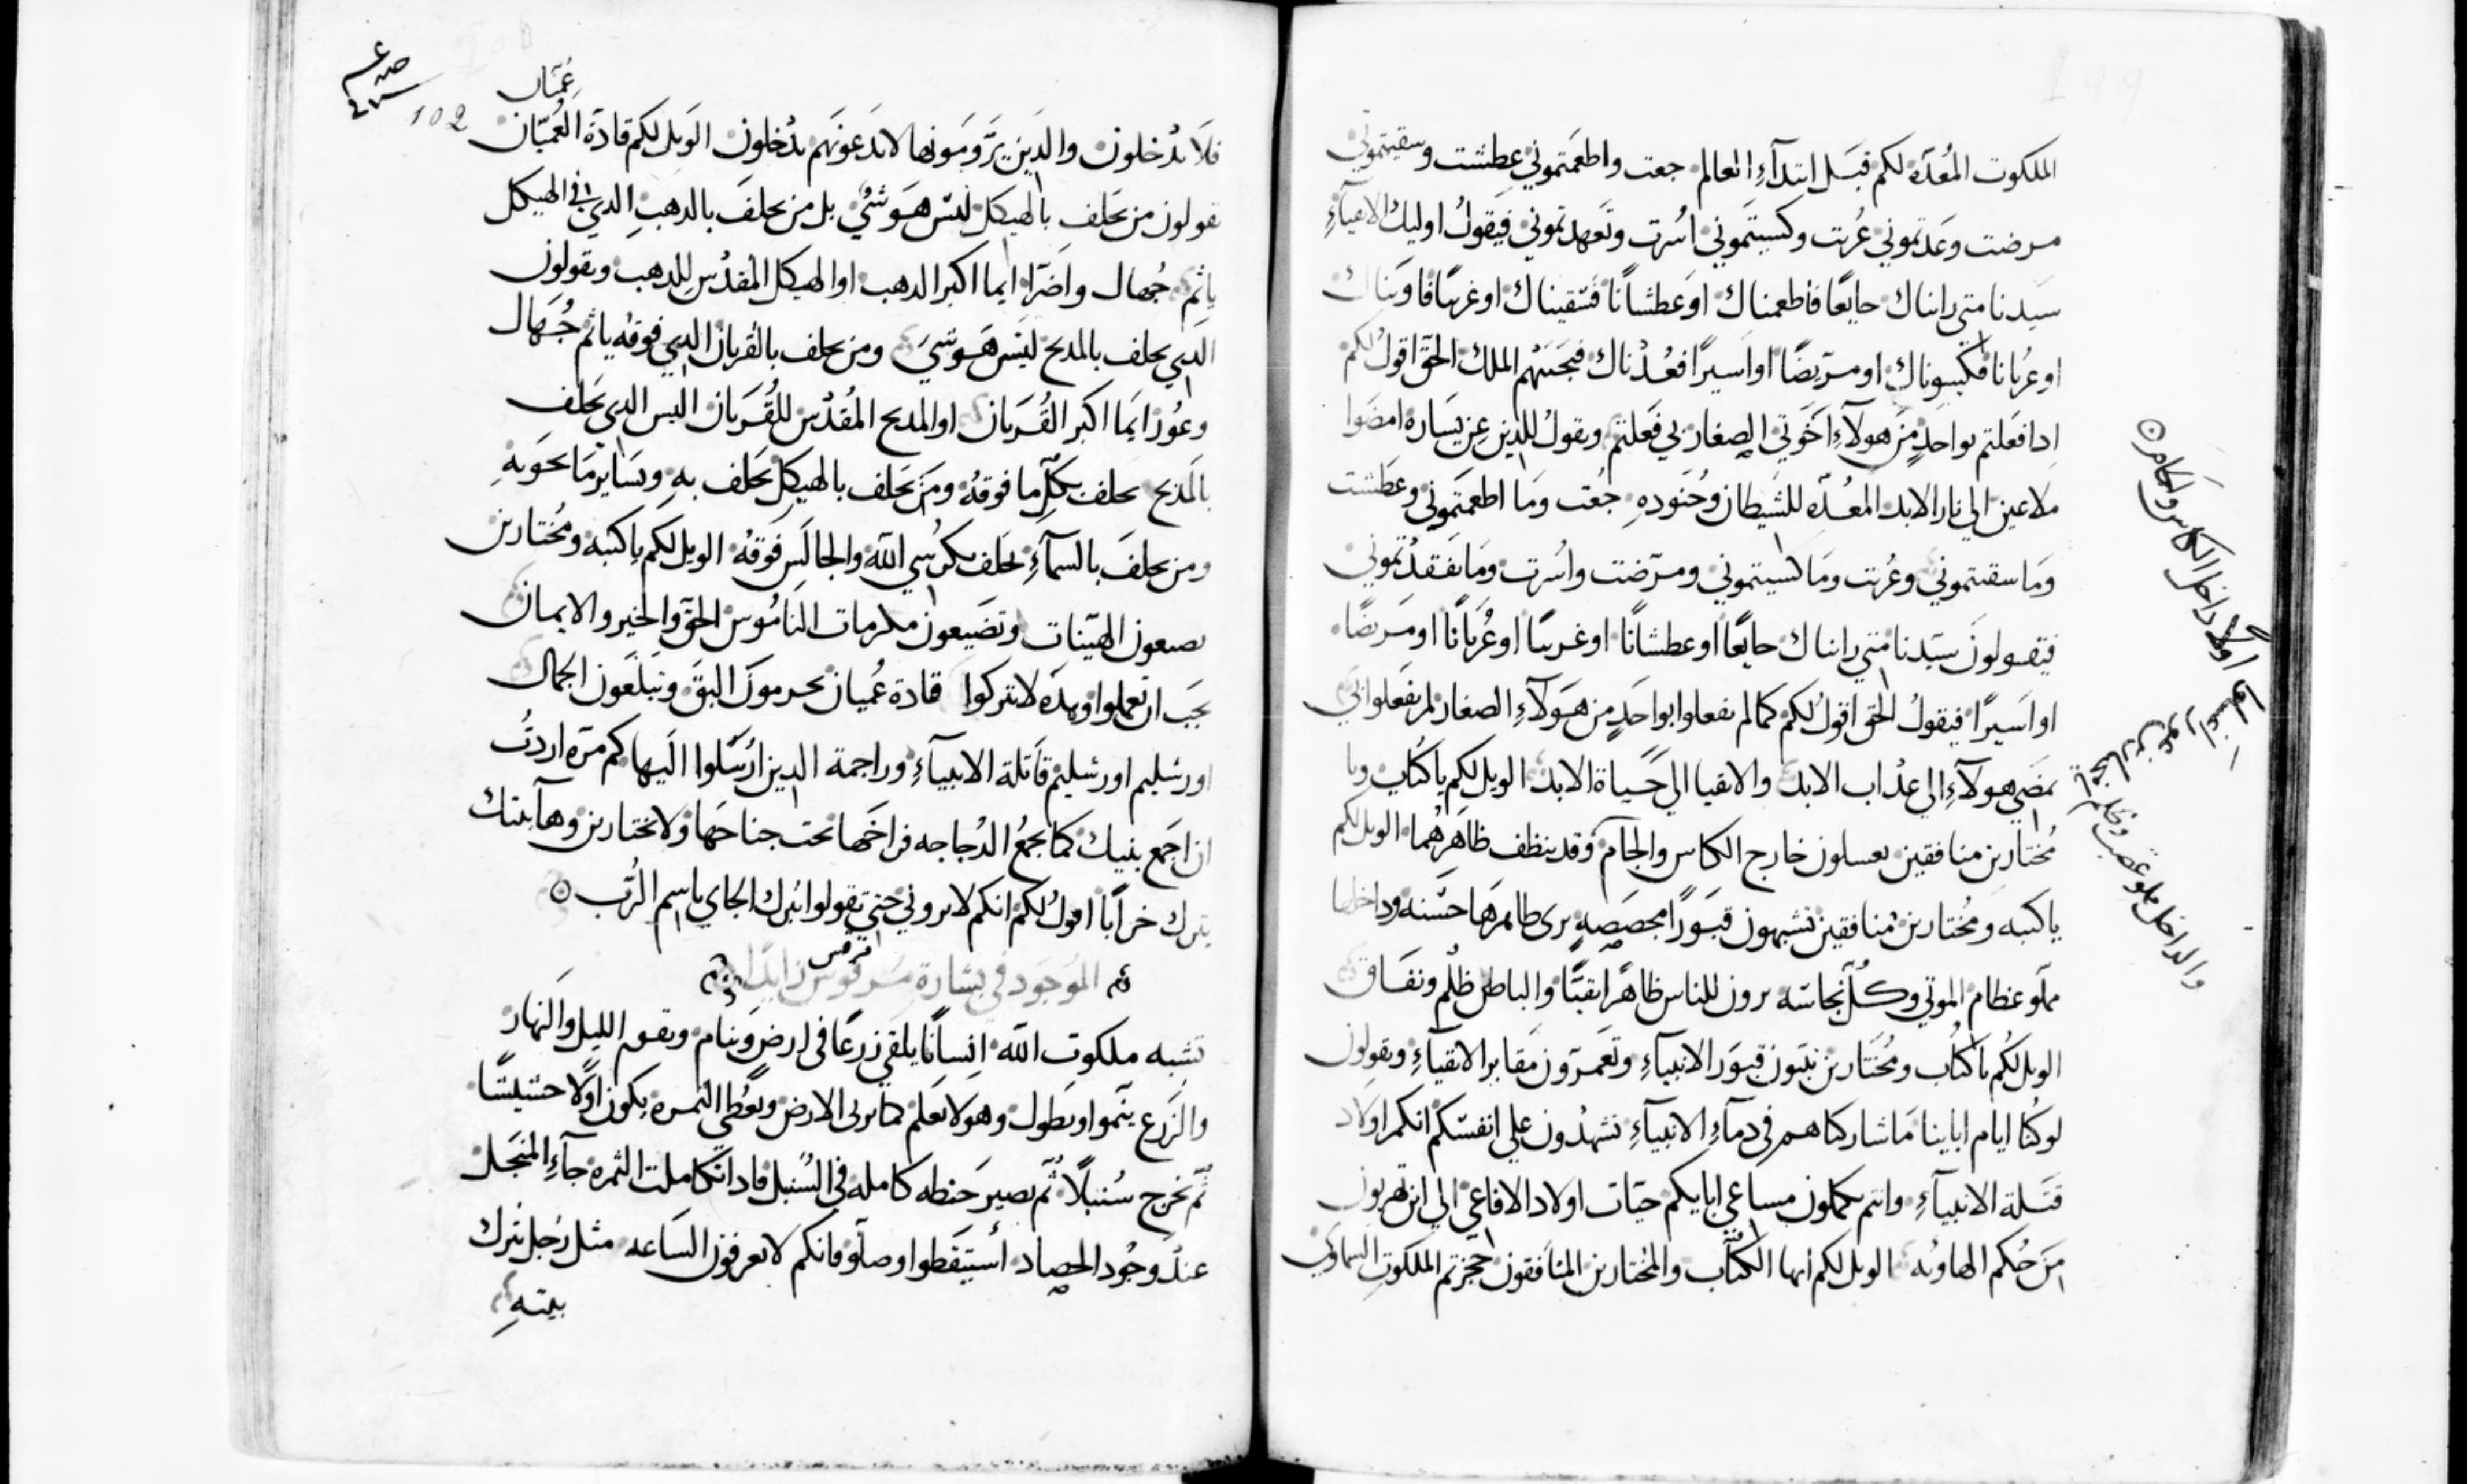 الملكوت المُعدّه لكم قبَل ابتدآءِ العالم جعت واطعَمتموني عطشت وسقيتموني
مرضت وعَدتموني عُريت وكسيتَموني اسُرت وتَعهدتموني فيَقولُ اوليك الاغنيآءِ
سيَدنا متي راىناك جايعًا فاطعمناك اوَعطشاًنا فسَقيناك اوغريبًا فاويناك
اوعرُيانا فكسوناك اومرَيضًا اواسيرًا فعُدْناك فيجَيبَهُم الملك الحَقّ اقولُ لكم
ادا فعَلتم بواحدٍ منَ هولآءِ اخَوتي الصغار بي فعَلتم ويقولُ للذين عن يسَاره امضَوا
ملاعين الي نار الابد المعُدّه للشَيطان وجُنوده جُعت ومَا اطعمَتموني وعَطشت
ومَا سقيتموني وعُريت ومَا كسَيتموني ومرّضت واسُرت ومَا تفَقدْتموني
فيَقولونَ سيَدنا متي راىناك جايعًا اوعطشانًا اوغريبًا اوعُريانًا اومَريضًا
اواَسيرًا فيقولُ الحَق اقولُ لكُم كما لم تفعلوا بواحَدٍ من هَوَلآءِ الصغار لم تفَعلوا بي
يمَضي هولآءِ الي عذاب الابد والاتقيا الي حَياة الابد الويل لكم يا كتُاب ويا
مُختارين منافقين تعسلون خارج الكاس والجام وقد ينظف ظاهَرهُما الويل لكم
يا كتبه ومُختارين مُنافقين تشبهون قبوَرًا مجصَصهٍ يرى ظاهرَها حسَنه وداخلها
مملّو عظام الموتي وكلُ نجاسَه برون للناس ظاهَرًا نقيًّا والباطن ظُلم ونفَاق
الويل لكُم يا كتُاب ومُختَارين تبَنون قبوَر الانبيآءِ وتَعمرّون مَقابر الاتقيآءِ وتقولون
لوكنُا ايام اباينا مَا شاركناهم في دمآءِ الانبيآءِ تشهدُون علي انفسَكم انكم اولاد
قتَلة الانبيآءِ وانتم تكملون مساعي ابايكم حيّات اولاد الافاعي الي اين تهربون
منَ حُكم الهاويُه الويل لكم ايها الكتُّاب والمُختارين المنُافقون حَجزتم الملكوت السماوي
اغسلوا اولاً داخل الكاس والجام
والداخل مملو غصَب وظلم
فلَا تدْخلون والذين يرَومَونها لا تدَعونهَم يدْخلون الوَيل لكم قادَة العُميّان
عُميّان
102
تقولون من يَحلف بالهيكل ليَس هَو شَيْ بل من يحلفَ بالدهبِ الدي في الهيكل
ياثم جُهال واضَرّا ايما اكبر الدهب او الهيكل المُقدْس للدهب وتقولون
الذي يحلف بالمدبح ليَس هَو شيَ ومن يحلف بالقربان الدي فوقه ياثم جُهَال
وعُور ايَما اكبر القُربَان او المدبح المُقدْس للقُربَان اليس الدي يَحلف
بالمَدبح يحلف بكلّ ما فوقهُ ومَن يَحلف بالهيكل يَحلف بهِ وبَسَاير مَا يحَويهِ
ومن يحلفَ بالسمآءِ يَحلف بكرُسي اللّه والجالَس فَوقهُ الويل لكم يا كتبه ومُختارين
تصنعون الهيَنات وتضَيعون مكرمات النَامُوس الحقَّ والخير والايمان
يجَب ان تعملوا وبهذه لا تتركوا قادة عُميان تحرموَن البقَ وتبَلعَون الجمال
اورشليم اورشليم قاَتلة الانبيآءِ وراجمة الدين ارُسَلوا اليها كم مَرّه اردتُ
ان اجَمع بنيك كما تجمعُ الدْجاجه فراخَها تحت جناحَها ولا تختارين وهآ بيتك
يترك خراًبا اقولُ لكم انكم لا تروني حتي تقولوا تبَرك الجاي باسم الرَب
المُوجَود في بشارة مَرقوس زايدًا
مرقس
تشبه ملكوت اللّه انساًنا يلقي زرعًا في ارض وَينام ويقوم الليل والنَهار
والزَرع ينَموا ويَطول وهو لا يَعلم كما تربي الارض وتعُطي الثمره يكون اوَلًا حشيشًا
ثم يخَرج سُنبلًا ثم يصير حَنطه كامله في السُنبل فادا تكاملت الثمره جآءِ المنجَل
عند وجُود الحصاد أستيَقظوا وصلَّو فانكم لا تعرفون السَاعه مثل رجُل تَرك
بيتهِ